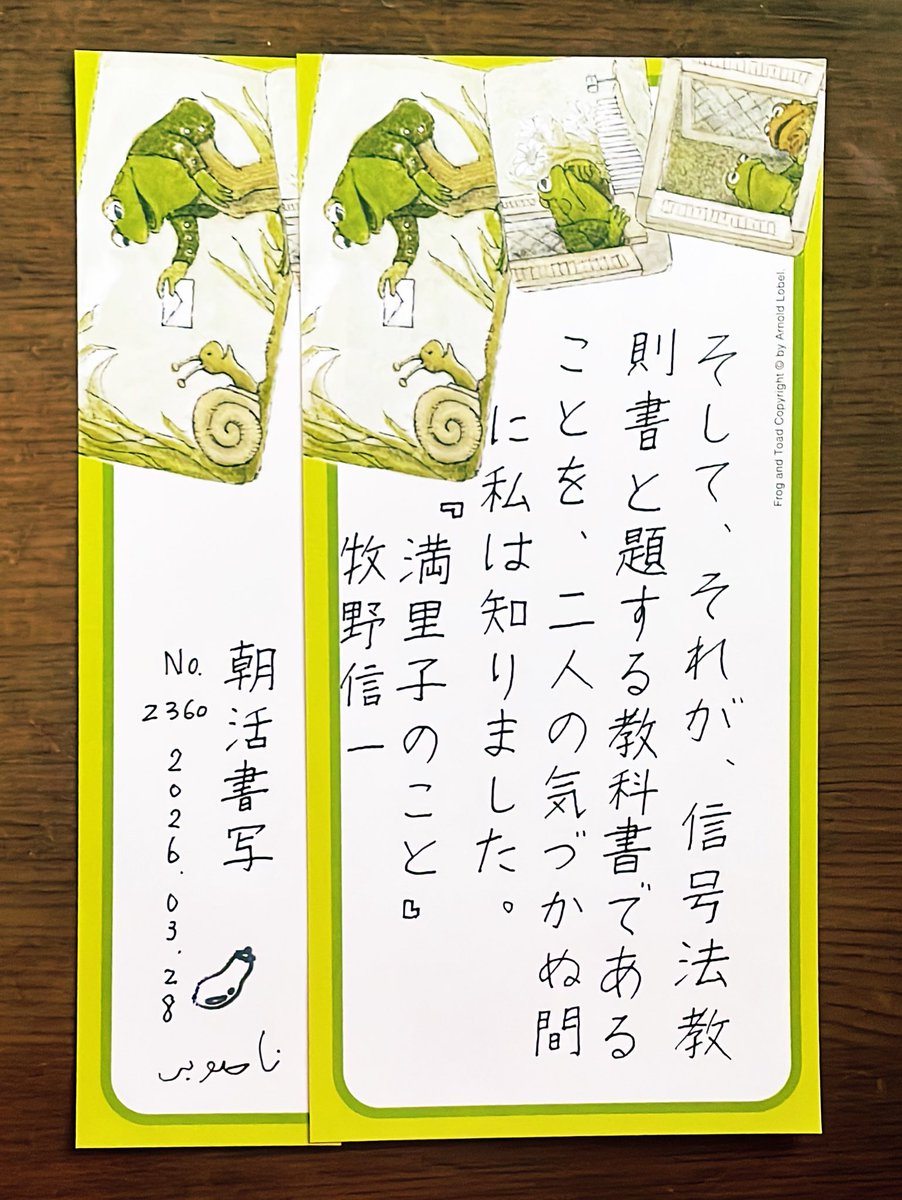 そして、それが、信号法教
則書と題する教科書である
ことを、二人の気づかぬ間
に私は知りました。
『満里子のこと』
牧野信一
Frog and Toad Copyright © by Arnold Lobel.
朝活書写
No.
2360
2026.03.28